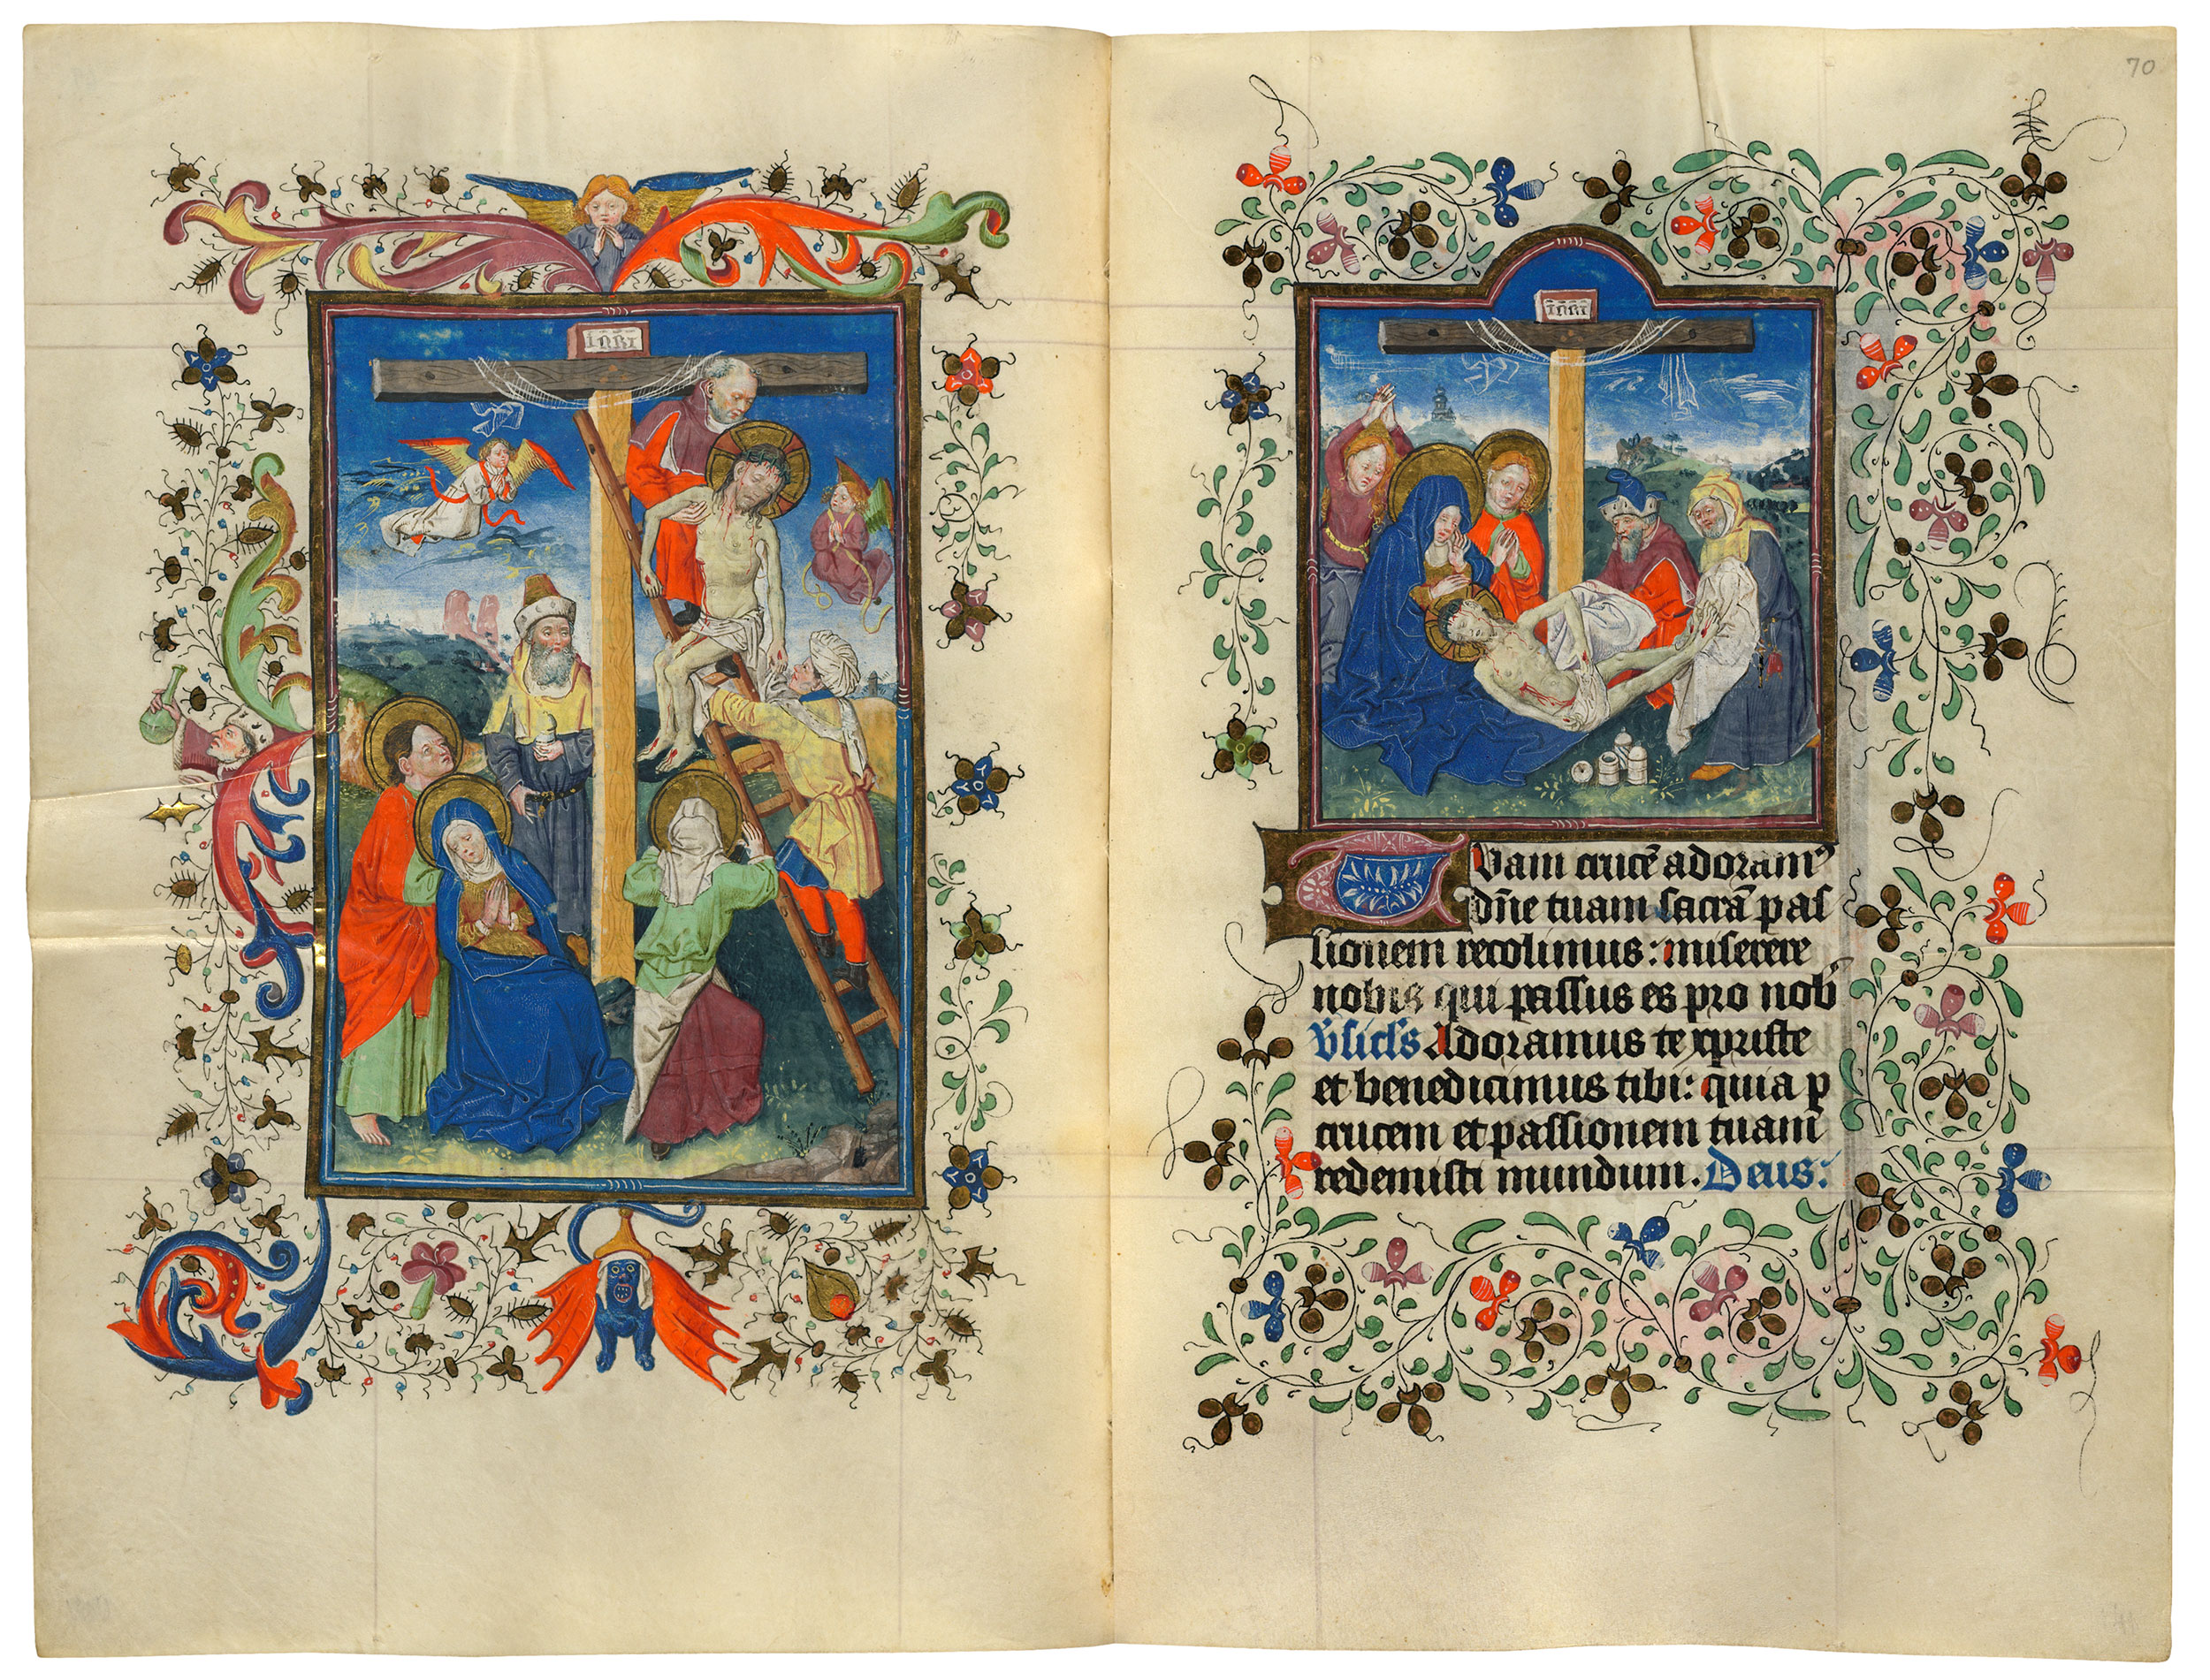 INRI
70
INRI
Tuam crucē adoramꝰ
dn̄e tuam sacrā pas
sionem recolimus: miserere
nobis qui passus es pro nob̄
v̄sicl̄s Adoramus te xpriste
et benedicimus tibi: quia p
crucem et passionem tuam
redemisti mundum. Deus: